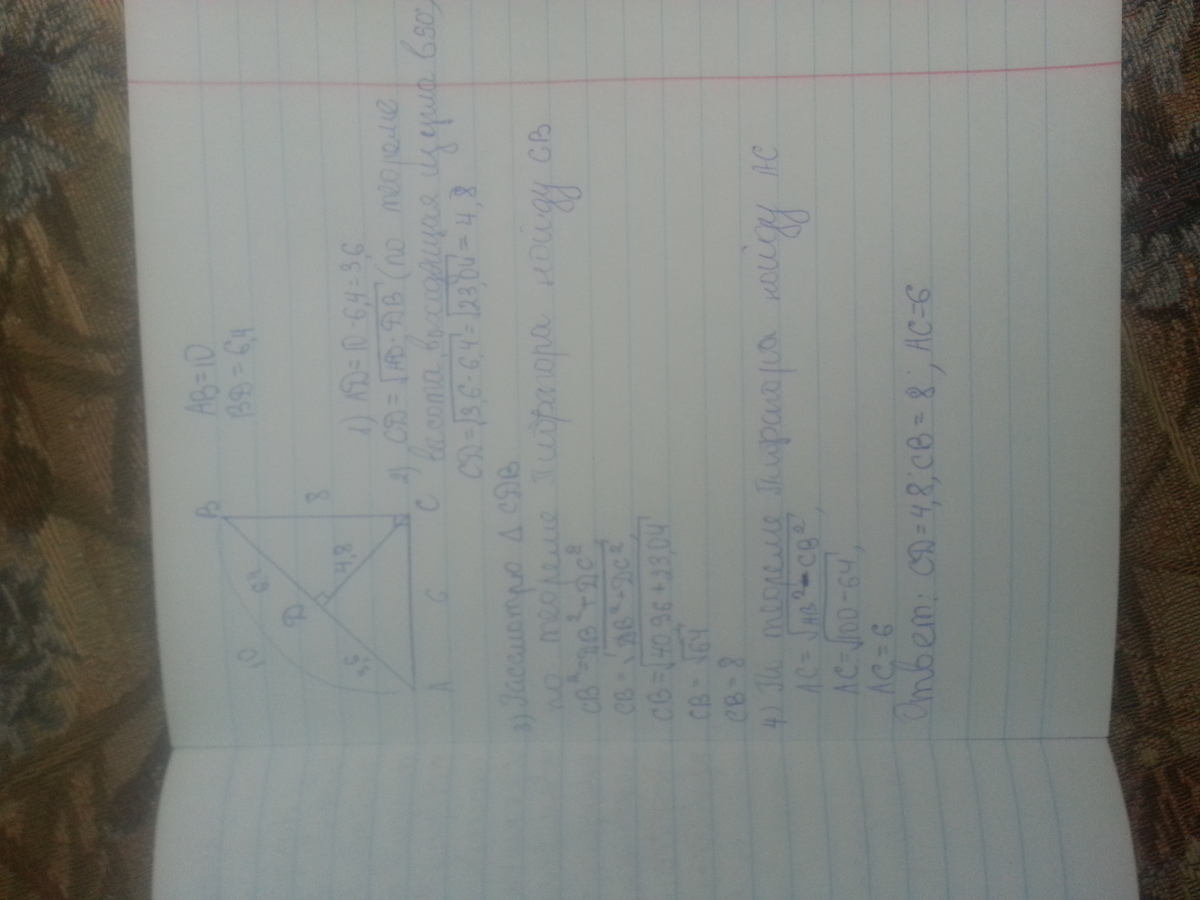 AB=10
BD=6,4
B
10
6,4
D
8
4,8
3,6
A
6
C
1) AD=10-6,4=3,6
2) CD=√AD·DB (по теореме
высота, выходящая из угла в 90°,
CD=√3,6·6,4=√23,04=4,8
3) Рассмотрю Δ CDB
по теореме Пифагора найду CB
CB²=DB²+DC²
CB=√DB²+DC²,
CB=√40,96+23,04
CB=√64
CB=8
4) По теореме Пифагора найду AC
AC=√AB²-CB²,
AC=√100-64,
AC=6
Ответ: CD=4,8; CB=8; AC=6